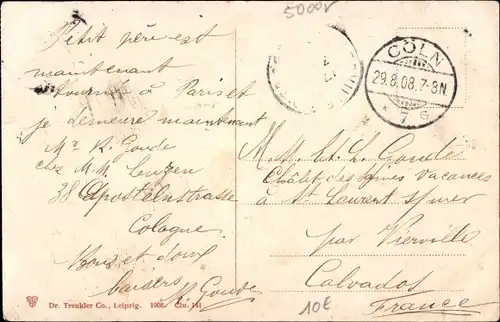 5000r
Petit père est
maintenant
tourné à Paris et
je demeure maintenant
Mr R. Goude
chez M. M. Leuzen
38 Apostelnstrasse
Cologne
Bons et doux
baisers
R. Goude
CÖLN
29.8.08.7-8N
* 7 g
M. M. et L. Goude
Châlet des fines Vacances
à St Laurent s/mer
par Vierville
Calvados
France
10€
Dr. Trenkler Co., Leipzig. 1908. Cln. 141